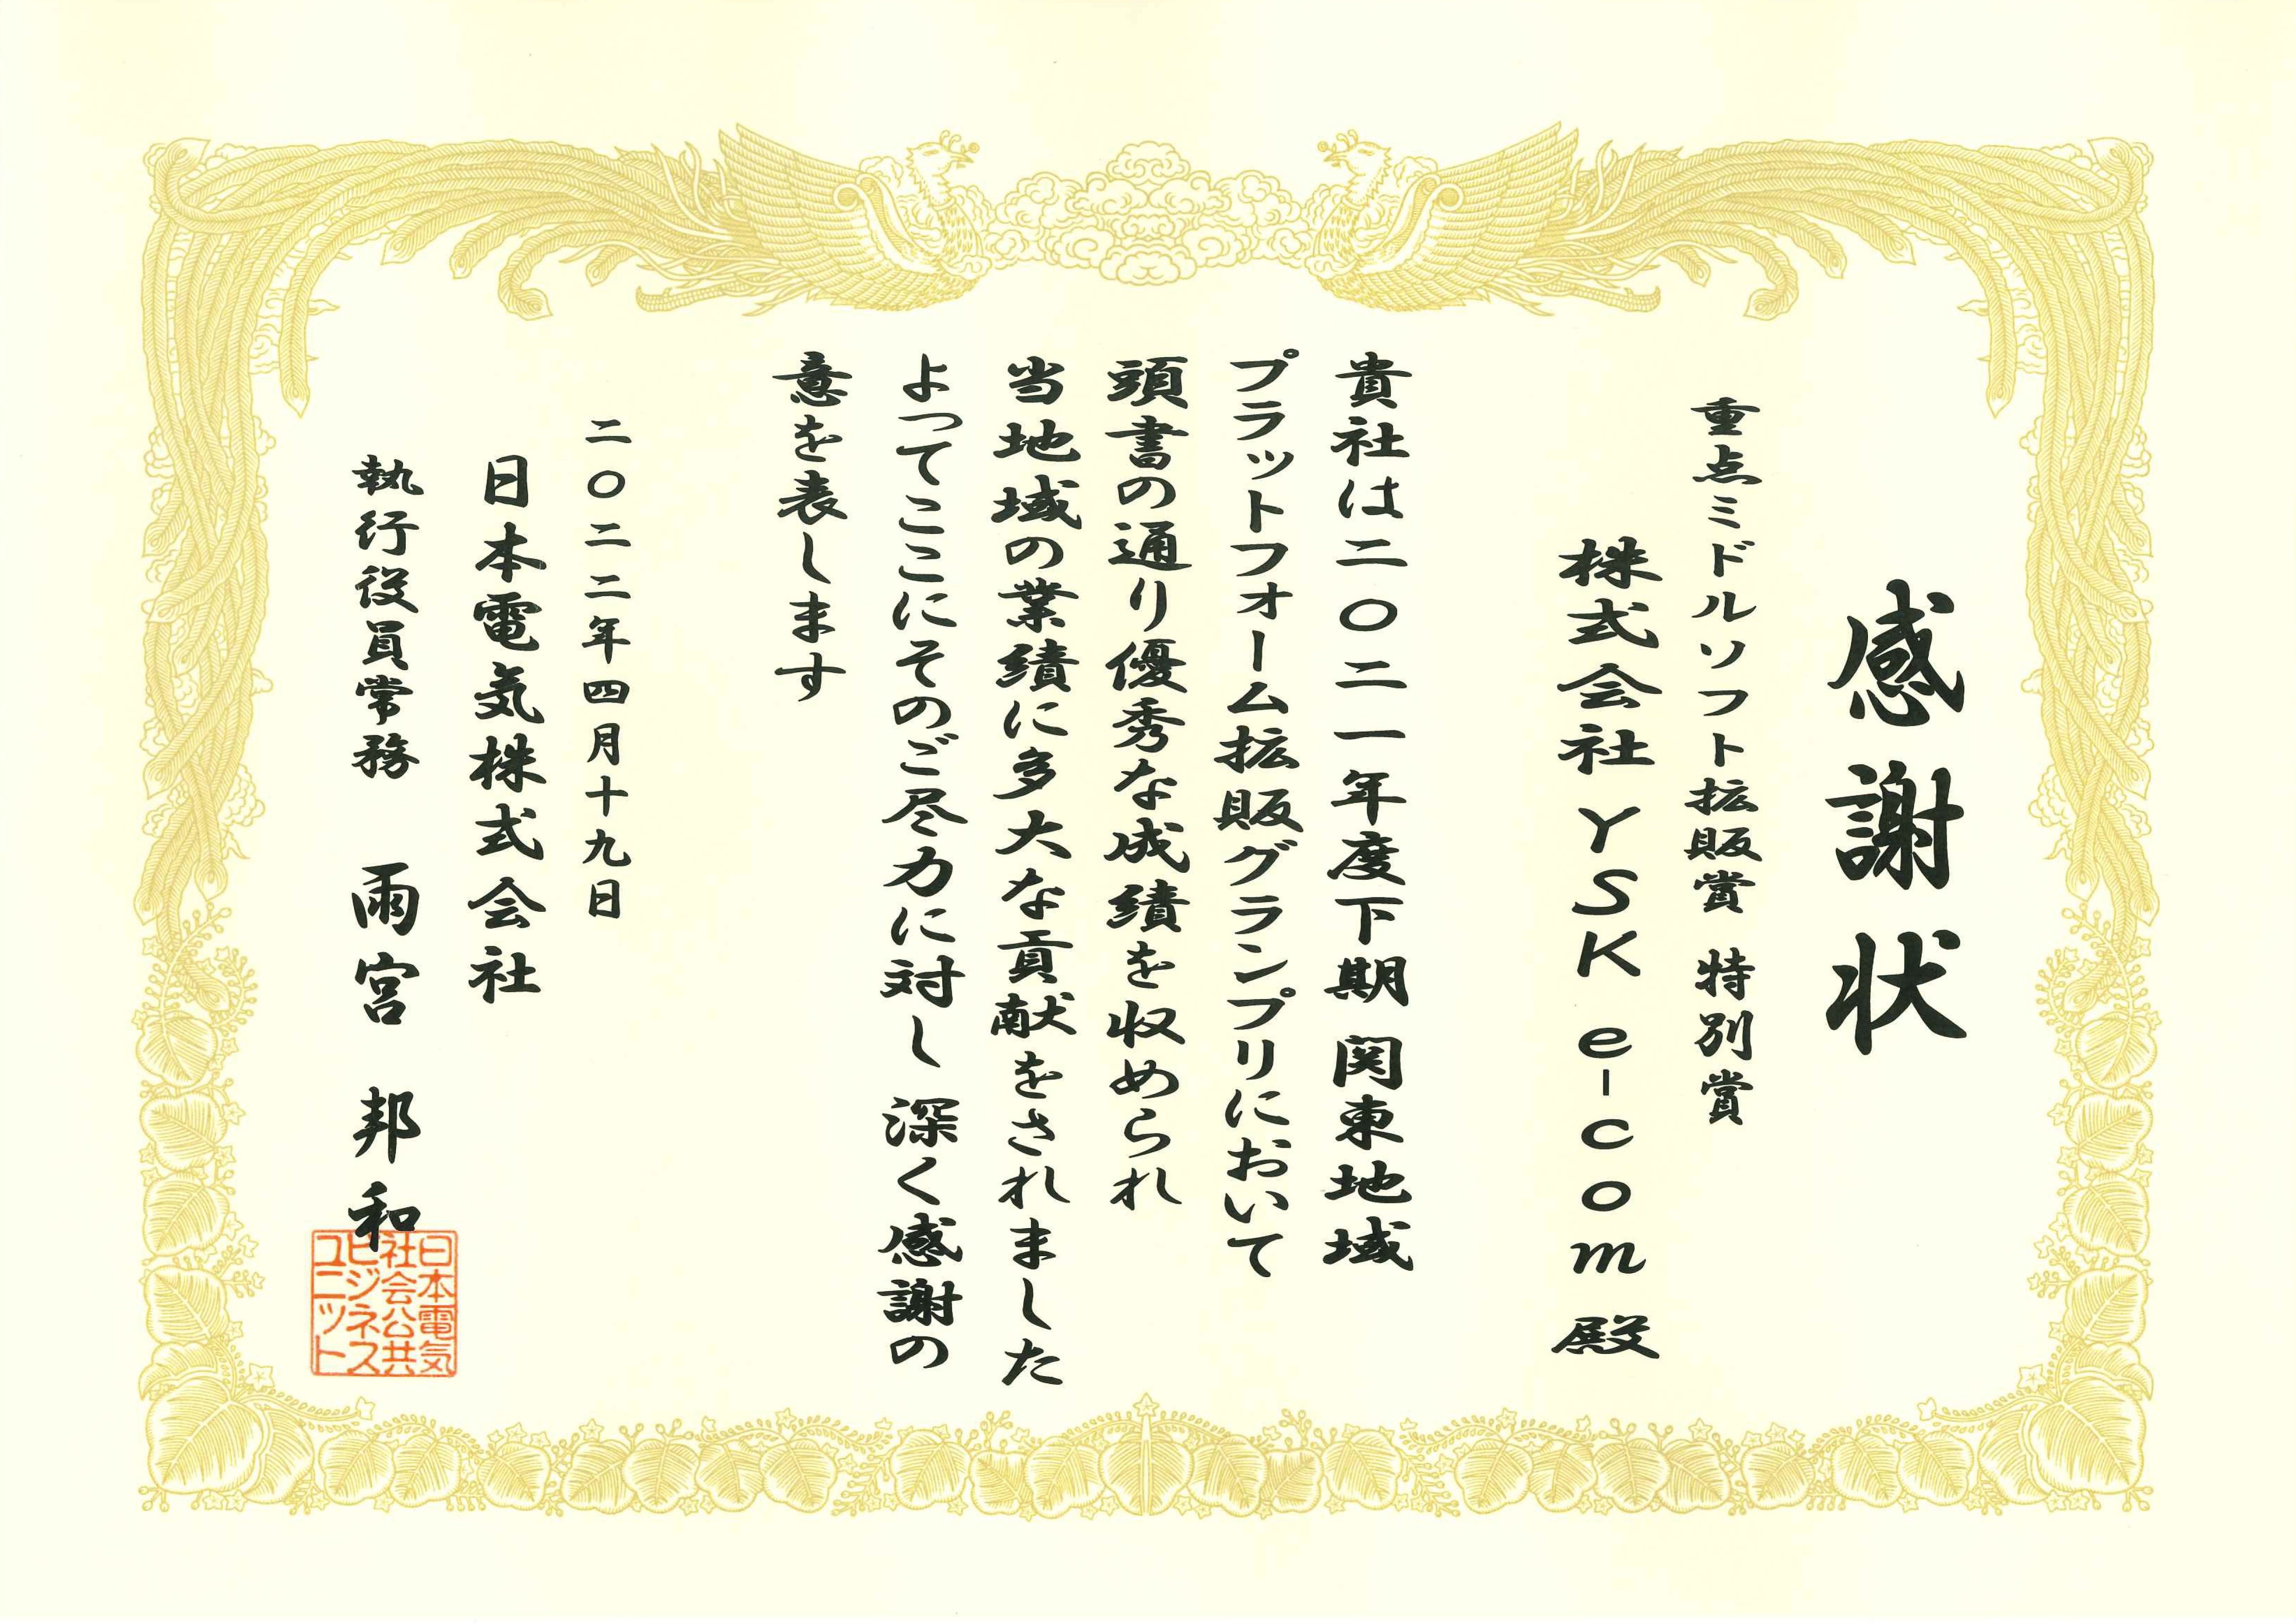 感謝状
重点ミドルソフト拡販賞 特別賞
株式会社 YSK e-com 殿
貴社は二〇二一年度下期 関東地域
プラットフォーム拡販グランプリにおいて
頭書の通り優秀な成績を収められ
当地域の業績に多大な貢献をされました
よってここにそのご尽力に対し 深く感謝の
意を表します
二〇二二年四月十九日
日本電気株式会社
執行役員常務 雨宮 邦和
日本電気
社会公共
ビジネス
ユニット